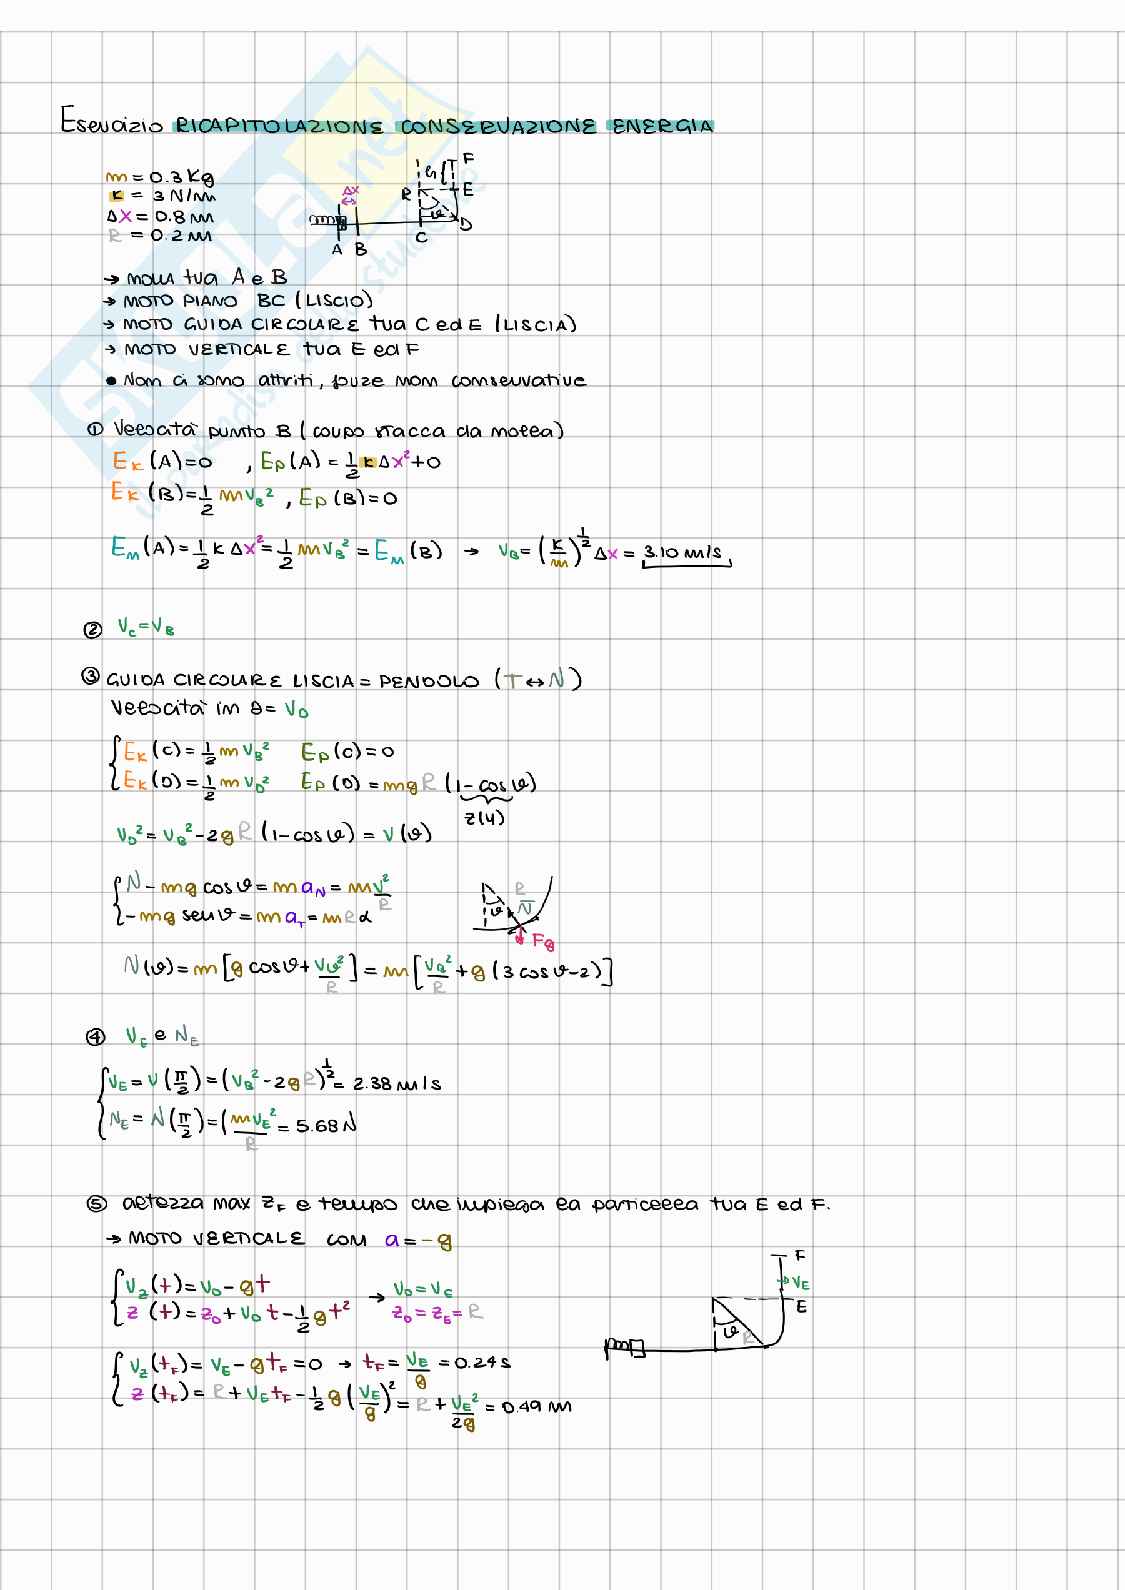 Esercizio RICAPITOLAZIONE CONSERVAZIONE ENERGIA
m = 0.3 Kg
k = 3 N/m
Δx = 0.8 m
R = 0.2 m
Δx
A B C D E F
R h ϑ
→ molla tra A e B
→ MOTO PIANO BC (LISCIO)
→ MOTO GUIDA CIRCOLARE tra C ed E (LISCIA)
→ MOTO VERTICALE tra E ed F
• Non ci sono attriti, forze non conservative
① Velocità punto B (corpo stacca da molla)
Eₖ(A)=0 , Eₚ(A) = 1/2 kΔx²+0
Eₖ(B)=1/2 mv_B² , Eₚ(B)=0
Eₘ(A)=1/2 kΔx²=1/2 mv_B² = Eₘ(B) → v_B=(k/m)^(1/2) Δx = 3.10 m/s
② v_C=v_B
③ GUIDA CIRCOLARE LISCIA = PENDOLO (T↔N)
Velocità in θ= v_D
Eₖ(C)=1/2 mv_B² Eₚ(C)=0
Eₖ(D)=1/2 mv_D² Eₚ(D)=mgR (1-cosϑ)
z(ϑ)
v_D²=v_B²-2gR(1-cosϑ)=v(ϑ)
N-mg cosϑ=m a_N=m v²/R
-mg senϑ=m a_T=mRα
ϑ R N Fg
N(ϑ)=m[g cosϑ+v_ϑ²/R]=m[v_B²/R+g(3cosϑ-2)]
④ v_E e N_E
v_E=v(π/2)=(v_B²-2gR)^(1/2)=2.38 m/s
N_E=N(π/2)=(mv_E²/R=5.68N
⑤ altezza max z_F e tempo che impiega la particella tra E ed F.
→ MOTO VERTICALE COM a=-g
v_z(t)=v₀-gt → v₀=v_E
z(t)=z₀+v₀t-1/2 gt² z₀=z_E=R
F
v_E
E
ϑ R
v_z(t_F)=v_E-gt_F=0 → t_F=v_E/g=0.24s
z(t_F)=R+v_Et_F-1/2 g(v_E/g)²=R+v_E²/2g=0.49 m